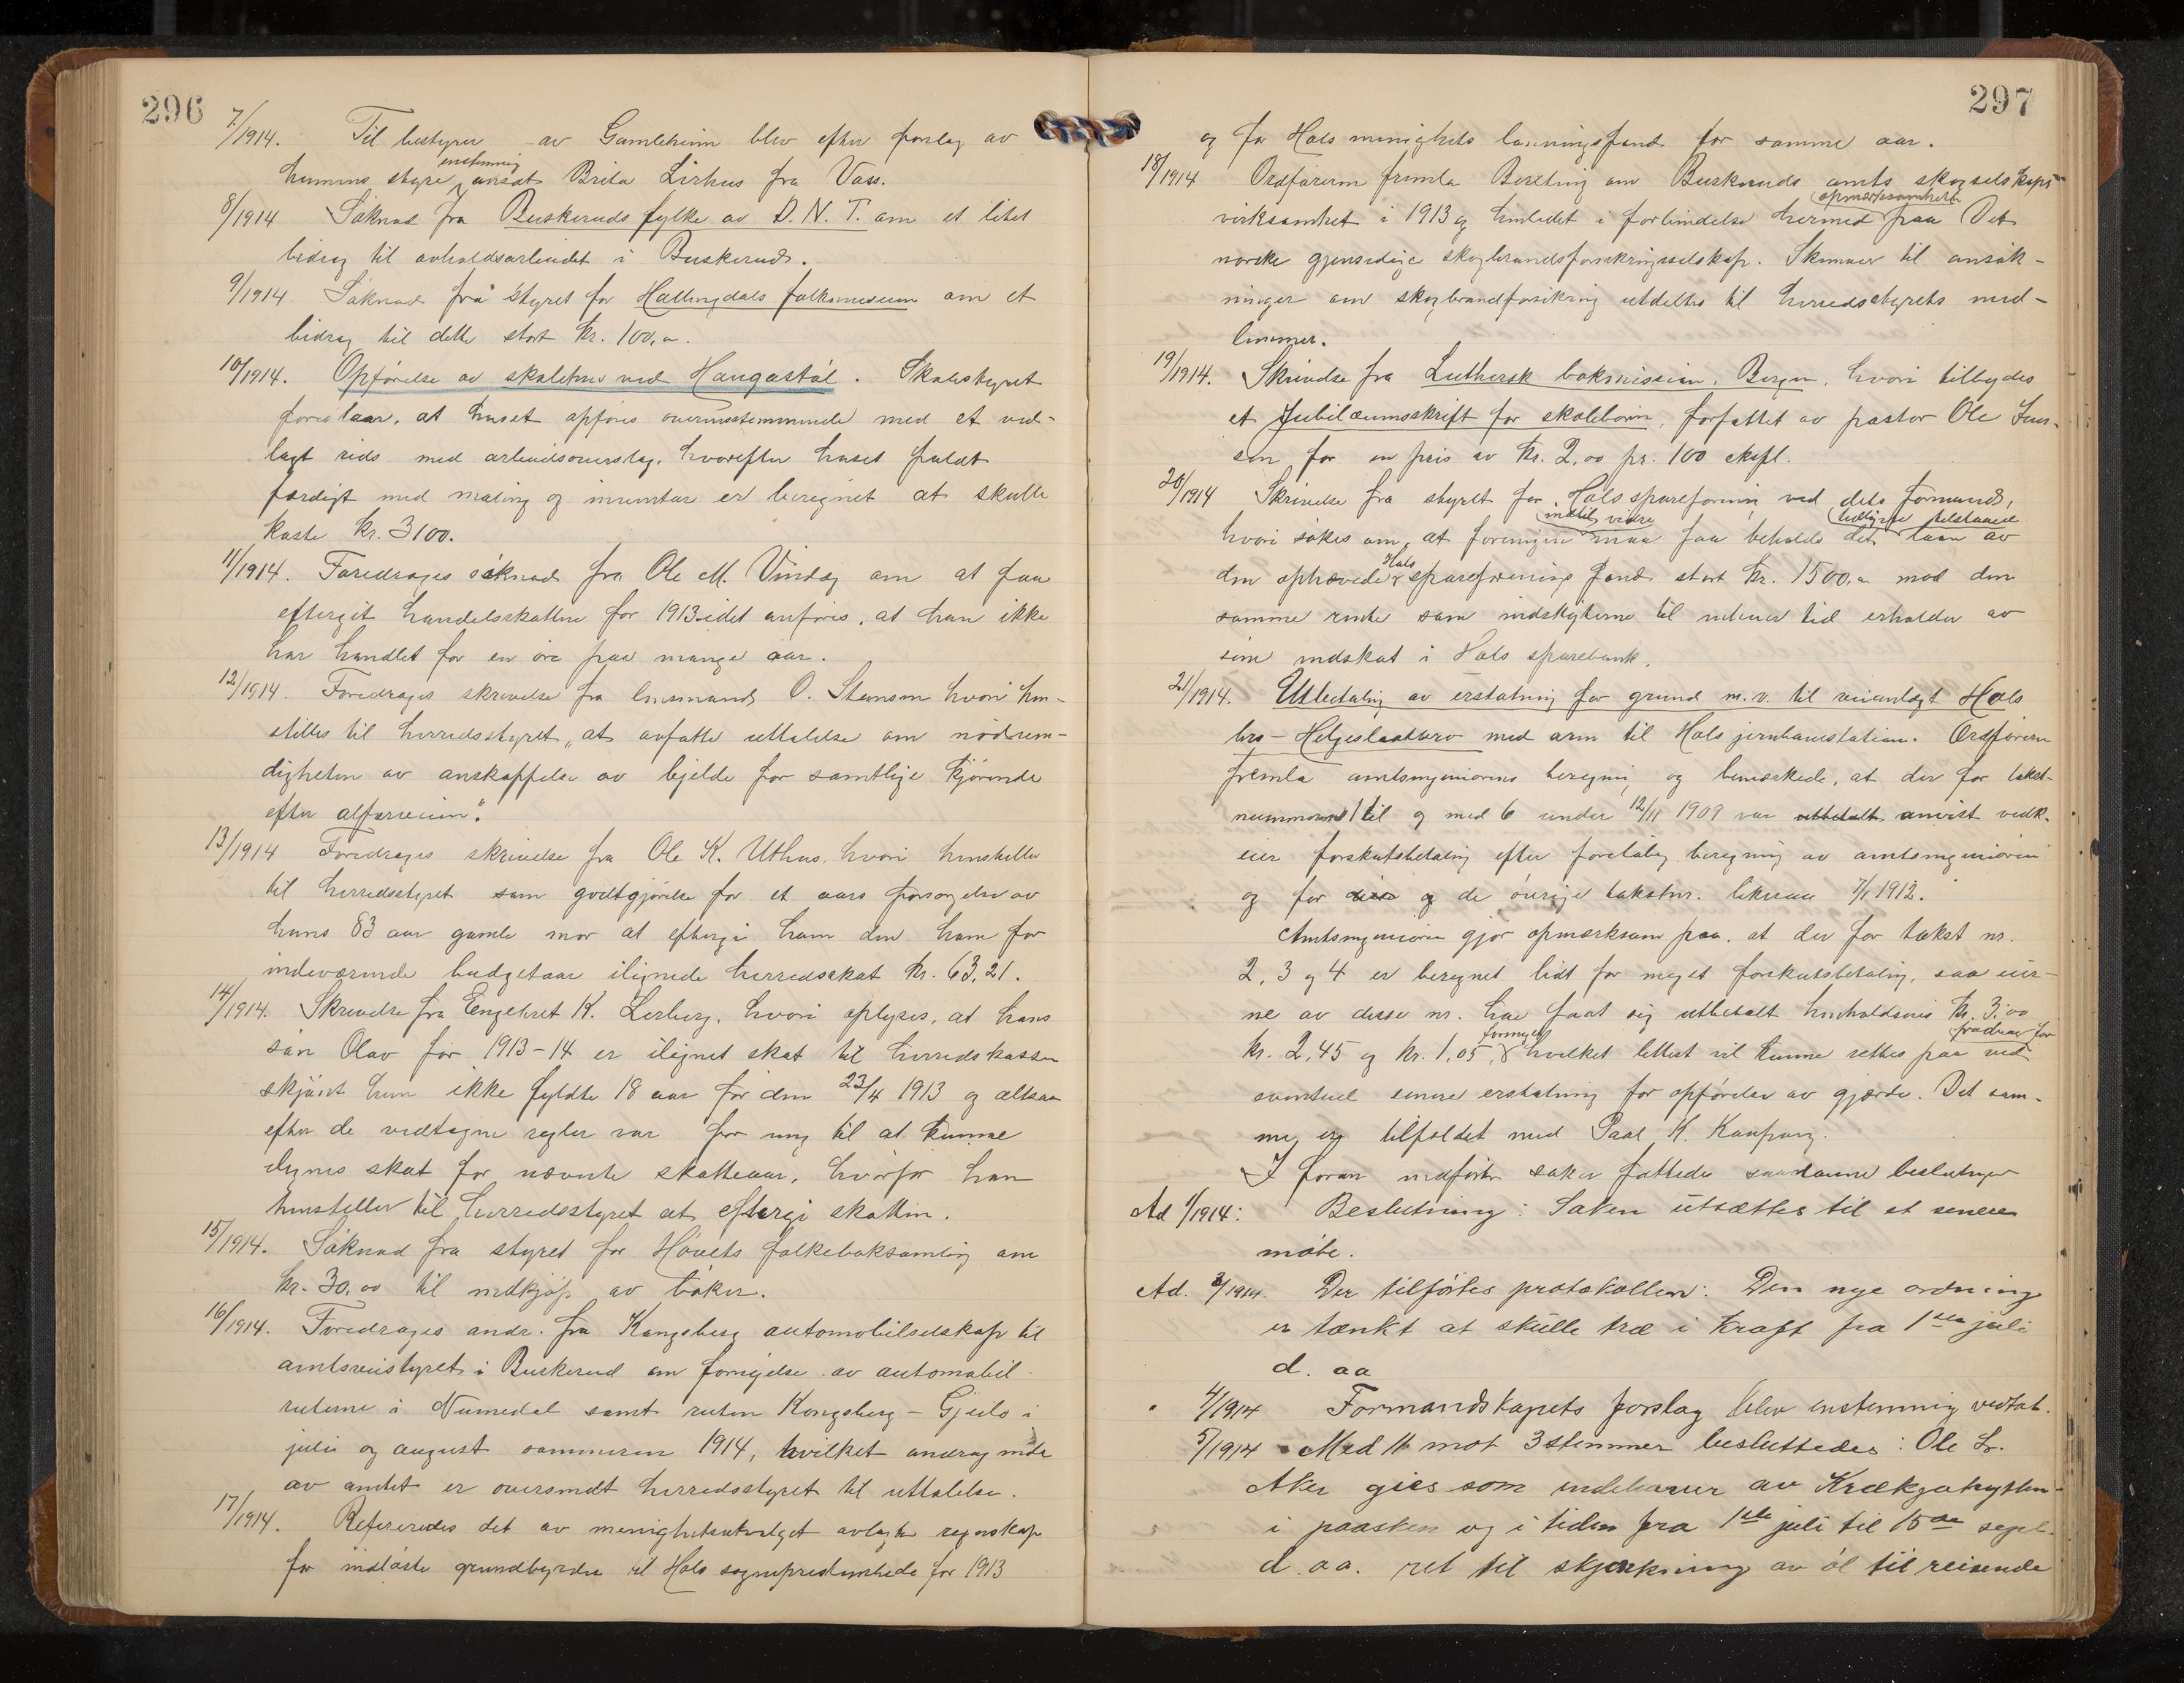 296
7/1914. Til bestyrer av Gamleheim blev efter forslag av
hemmets styre enstemmig ansat Brita Lirhus fra Voss.
8/1914 Søknad fra Buskeruds fylke av D. N. T. om et litet
bidrag til avholdsarbeidet i Buskerud.
9/1914 Søknad frå styret for Hallingdals folkemuseum om et
bidrag til dette stort kr. 100,00.
10/1914. Opførelse av skolehus ved Haugastøl. Skolestyret
foreslaar, at huset opføres overensstemmende med et ved-
lagt rids med arbeidsoverslag, hvorefter huset fuldt
færdigt med maling og inventar er beregnet at skulle
koste kr. 3100.
11/1914. Foredrages søknad fra Ole M. Vindeg om at faa
eftergit handelsskatten for 1913 idet anføres, at han ikke
har handlet for en øre paa mange aar.
12/1914. Foredrages skrivelse fra lensmand O. Stensen hvori hen-
stilles til herredsstyret „at avfatte uttalelse om nødven-
digheten av anskaffelse av bjelde for samtlige kjørende
efter alfarveien“.
13/1914 Foredrages skrivelse fra Ole K. Uthus, hvori henstilles
til herredsstyret som godtgjørelse for et aars forsørgelse av
hans 83 aar gamle mor at eftergi ham den ham for
indeværende budgetaar ilignede herredsskat kr. 63,21.
14/1914. Skrivelse fra Engebret K. Lerberg, hvori oplyses, at hans
søn Olav for 1913-14 er ilignet skat til herredskassen
skjønt han ikke fyldte 18 aar før den 23/4 1913 og altsaa
efter de vedtagne regler var for ung til at kunne
ilignes skat for nævnte skatteaar, hvorfor han
henstiller til herredsstyret at eftergi skatten.
15/1914. Søknad fra styret for Hovets folkeboksamling om
kr. 30,00 til indkjøp av bøker.
16/1914. Foredrages andr. fra Kongsberg automobilselskap til
amtsveistyret i Buskerud om fornyelse av automobil
ruterne i Numedal samt ruten Kongsberg – Gjeilo i
juli og august sommeren 1914, hvilket andragende
av amtet er oversendt herredsstyret til uttalelse.
17/1914. Refereredes det av menighetsutvalget avlagte regnskap
for indløste grundbyrder til Hols sogneprestembede for 1913
297
og for Hols menighets lønningsfond for samme aar.
18/1914 Ordføreren fremla Beretning om Buskeruds amts skogselskaps
virksomhet i 1913 og henledet i forbindelse hermed opmerksomheten paa Det
norske gjensidige skogbrandforsikringsselskap. Skemaer til ansøk-
ninger om skogbrandforsikring utdeltes til herredsstyrets med-
lemmer.
19/1914. Skrivelse fra Luthersk bokmission, Bergen, hvori tilbydes
et Jubilæumsskrift for skolebørn, forfattet av pastor Ole Jens-
sen for en pris av kr. 2,00 pr. 100 ekspl.
20/1914 Skrivelse fra styret for Hols spareforening ved dets formand,
hvori søkes om, at foreningen indtil videre maa faa beholde det tidligere tilstaaede laan av
den ophævede Hols spareforenings fond stort kr. 1500,00 mod den
samme rente som indskyterne til enhver tid erholder av
sine indskot i Hols sparebank.
21/1914. Utbetaling av erstatning for grund m. v. til veianlægt Hols
bro – Helgeslaatbro med arm til Hols jernbanestation. Ordføreren
fremla amtsingeniørens beregning og bemerkede, at der for takst-
nummerne 1 til og med 6 under 12/11 1909 var utbetalt anvist vedk.
eier forskutsbetaling efter foreløbig beregning av amtsingeniøren
og for og de øvrige takstnr. likesaa 7/1 1912.
Amtsingeniøren gjør opmerksom paa, at der for takst nr.
2, 3 og 4 er beregnet lidt for meget forskutsbetaling, saa eier-
ne av disse nr. har faat sig utbetalt henholdsvis kr. 3,00
kr. 2,45 og kr. 1,05 formeget hvilket lettest vil kunne rettes paa ved fradrag for
eventuel senere erstatning for opførelse av gjerde. Det sam-
me er tilfældet med Paal K. Kaupang.
I foran indførte saker fattedes saadanne beslutninger
Ad 1/1914: Beslutning: Saken utsættes til et senere
møte.
Ad. 3/1914. Der tilførtes protokollen: Den nye ordning
er tænkt at skulle træ i kraft fra 1ste juli
d. aa
4/1914 Formandskapets forslag blev enstemmig vedtat.
5/1914 Med 11 mot 3 stemmer besluttedes: Ole L.
Aker gies som indehaver av Krækjahytten
i paasken og i tiden fra 1ste juli til 15de sept.
d. aa. ret til skjænkning av øl til reisende